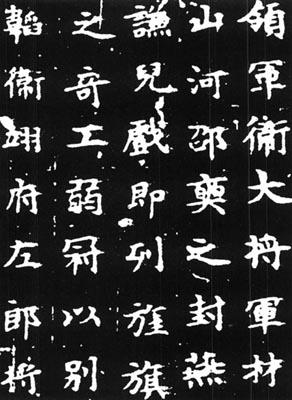 領軍衛大将軍材
山河邵奭之封燕
謙兒戲即列旌旗
之奇工弱冠以別
韜衛翊府左郎将